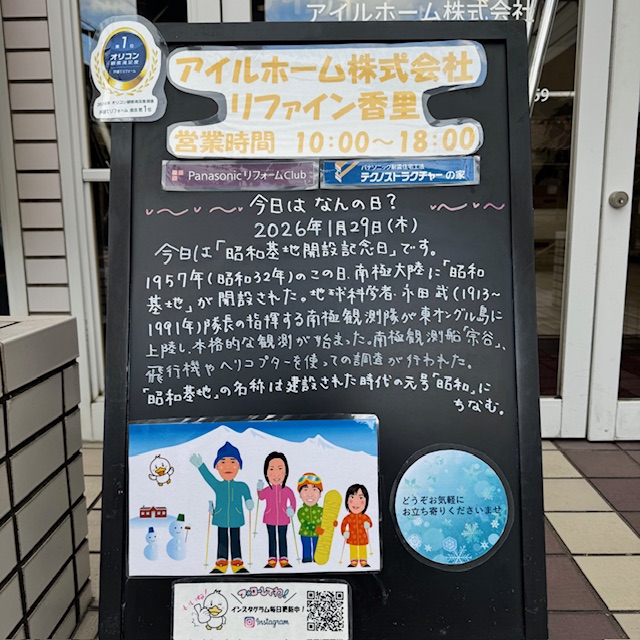 アイルホーム株式会社
第1位
オリコン
顧客満足度
アイルホーム株式会社
リファイン香里
営業時間 10:00～18:00
PanasonicリフォームClub
パナソニック耐震住宅工法
テクノストラクチャーの家
今日は なんの日？
2026年1月29日(木)
今日は「昭和基地開設記念日」です。
1957年(昭和32年)のこの日、南極大陸に「昭和
基地」が開設された。地球科学者・永田武(1913～
1991年)隊長の指揮する南極観測隊が東オングル島に
上陸し、本格的な観測が始まった。南極観測船「宗谷」、
飛行機やヘリコプターを使っての調査が行われた。
「昭和基地」の名称は建設された時代の元号「昭和」に
ちなむ。
どうぞお気軽に
お立ち寄りくださいませ
フォローしてね!
インスタグラム毎日更新中!
Instagram